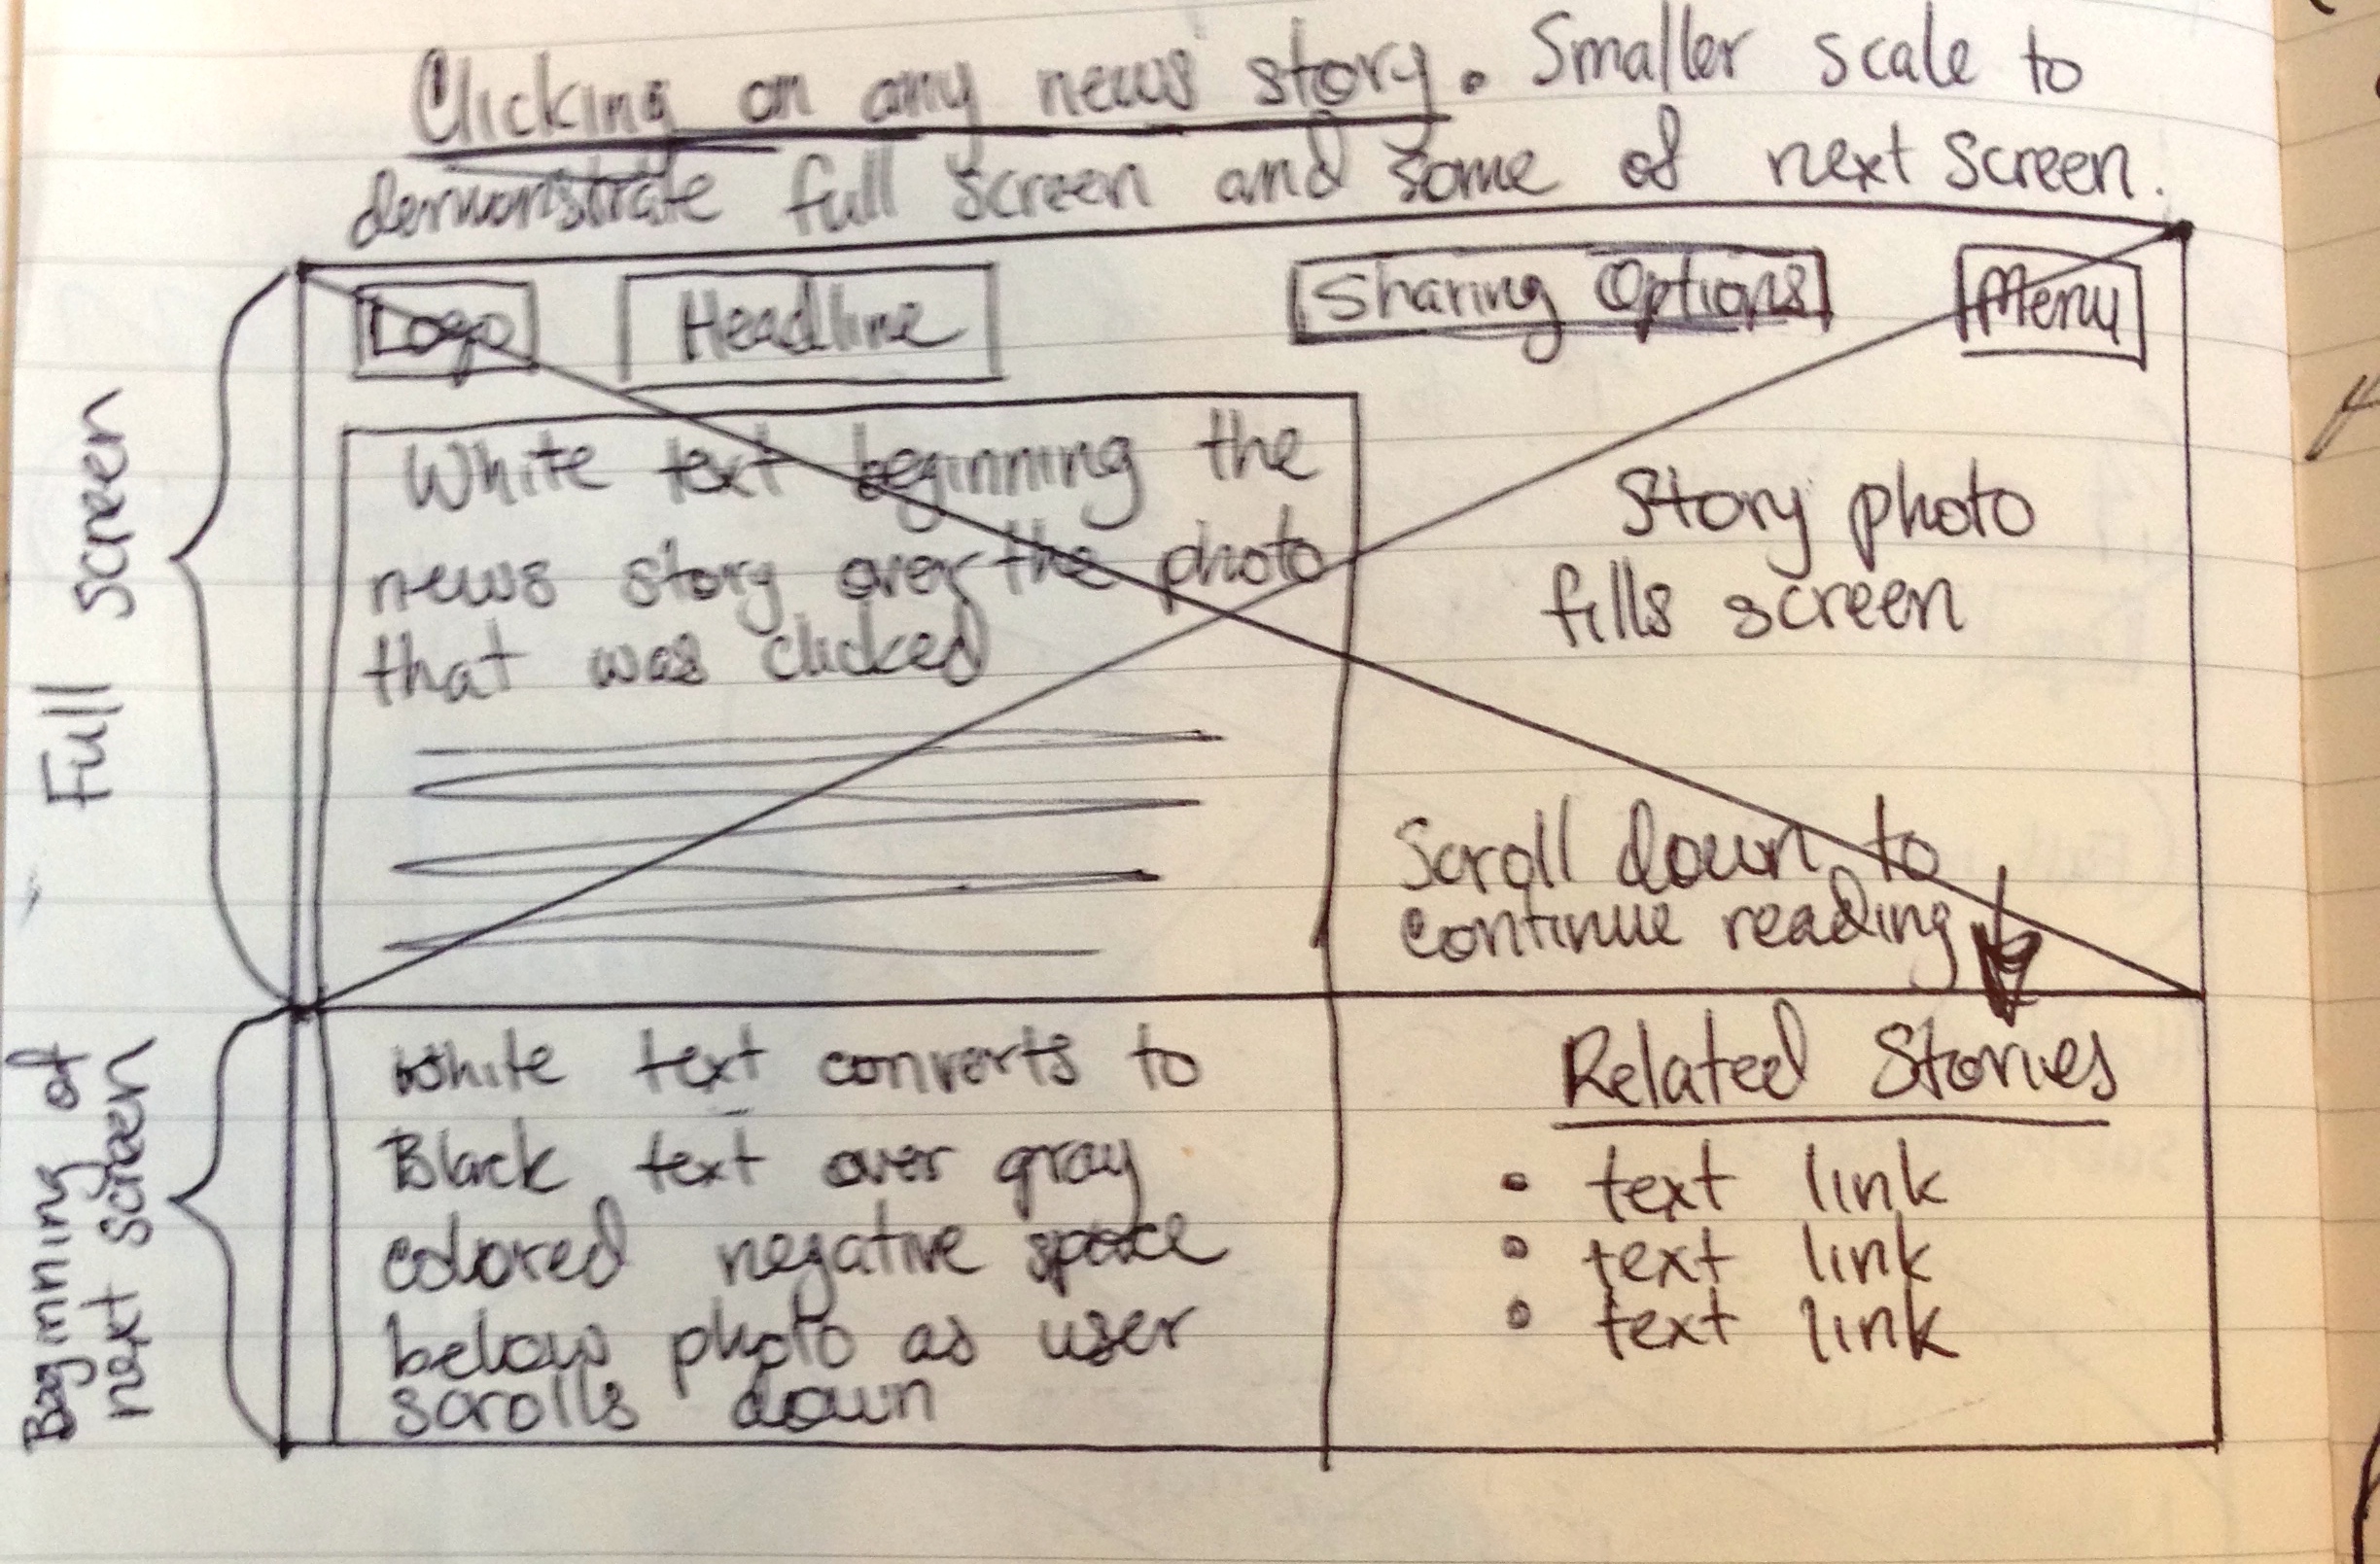 Clicking on any news story. Smaller scale to
demonstrate full screen and some of next screen.
Full screen
Logo
Headline
Sharing Options
Menu
White text beginning the
news story over the photo
that was clicked
Story photo
fills screen
Scroll down to
continue reading
Beginning of
next screen
White text converts to
Black text over gray
colored negative space
below photo as user
scrolls down
Related Stories
• text link
• text link
• text link